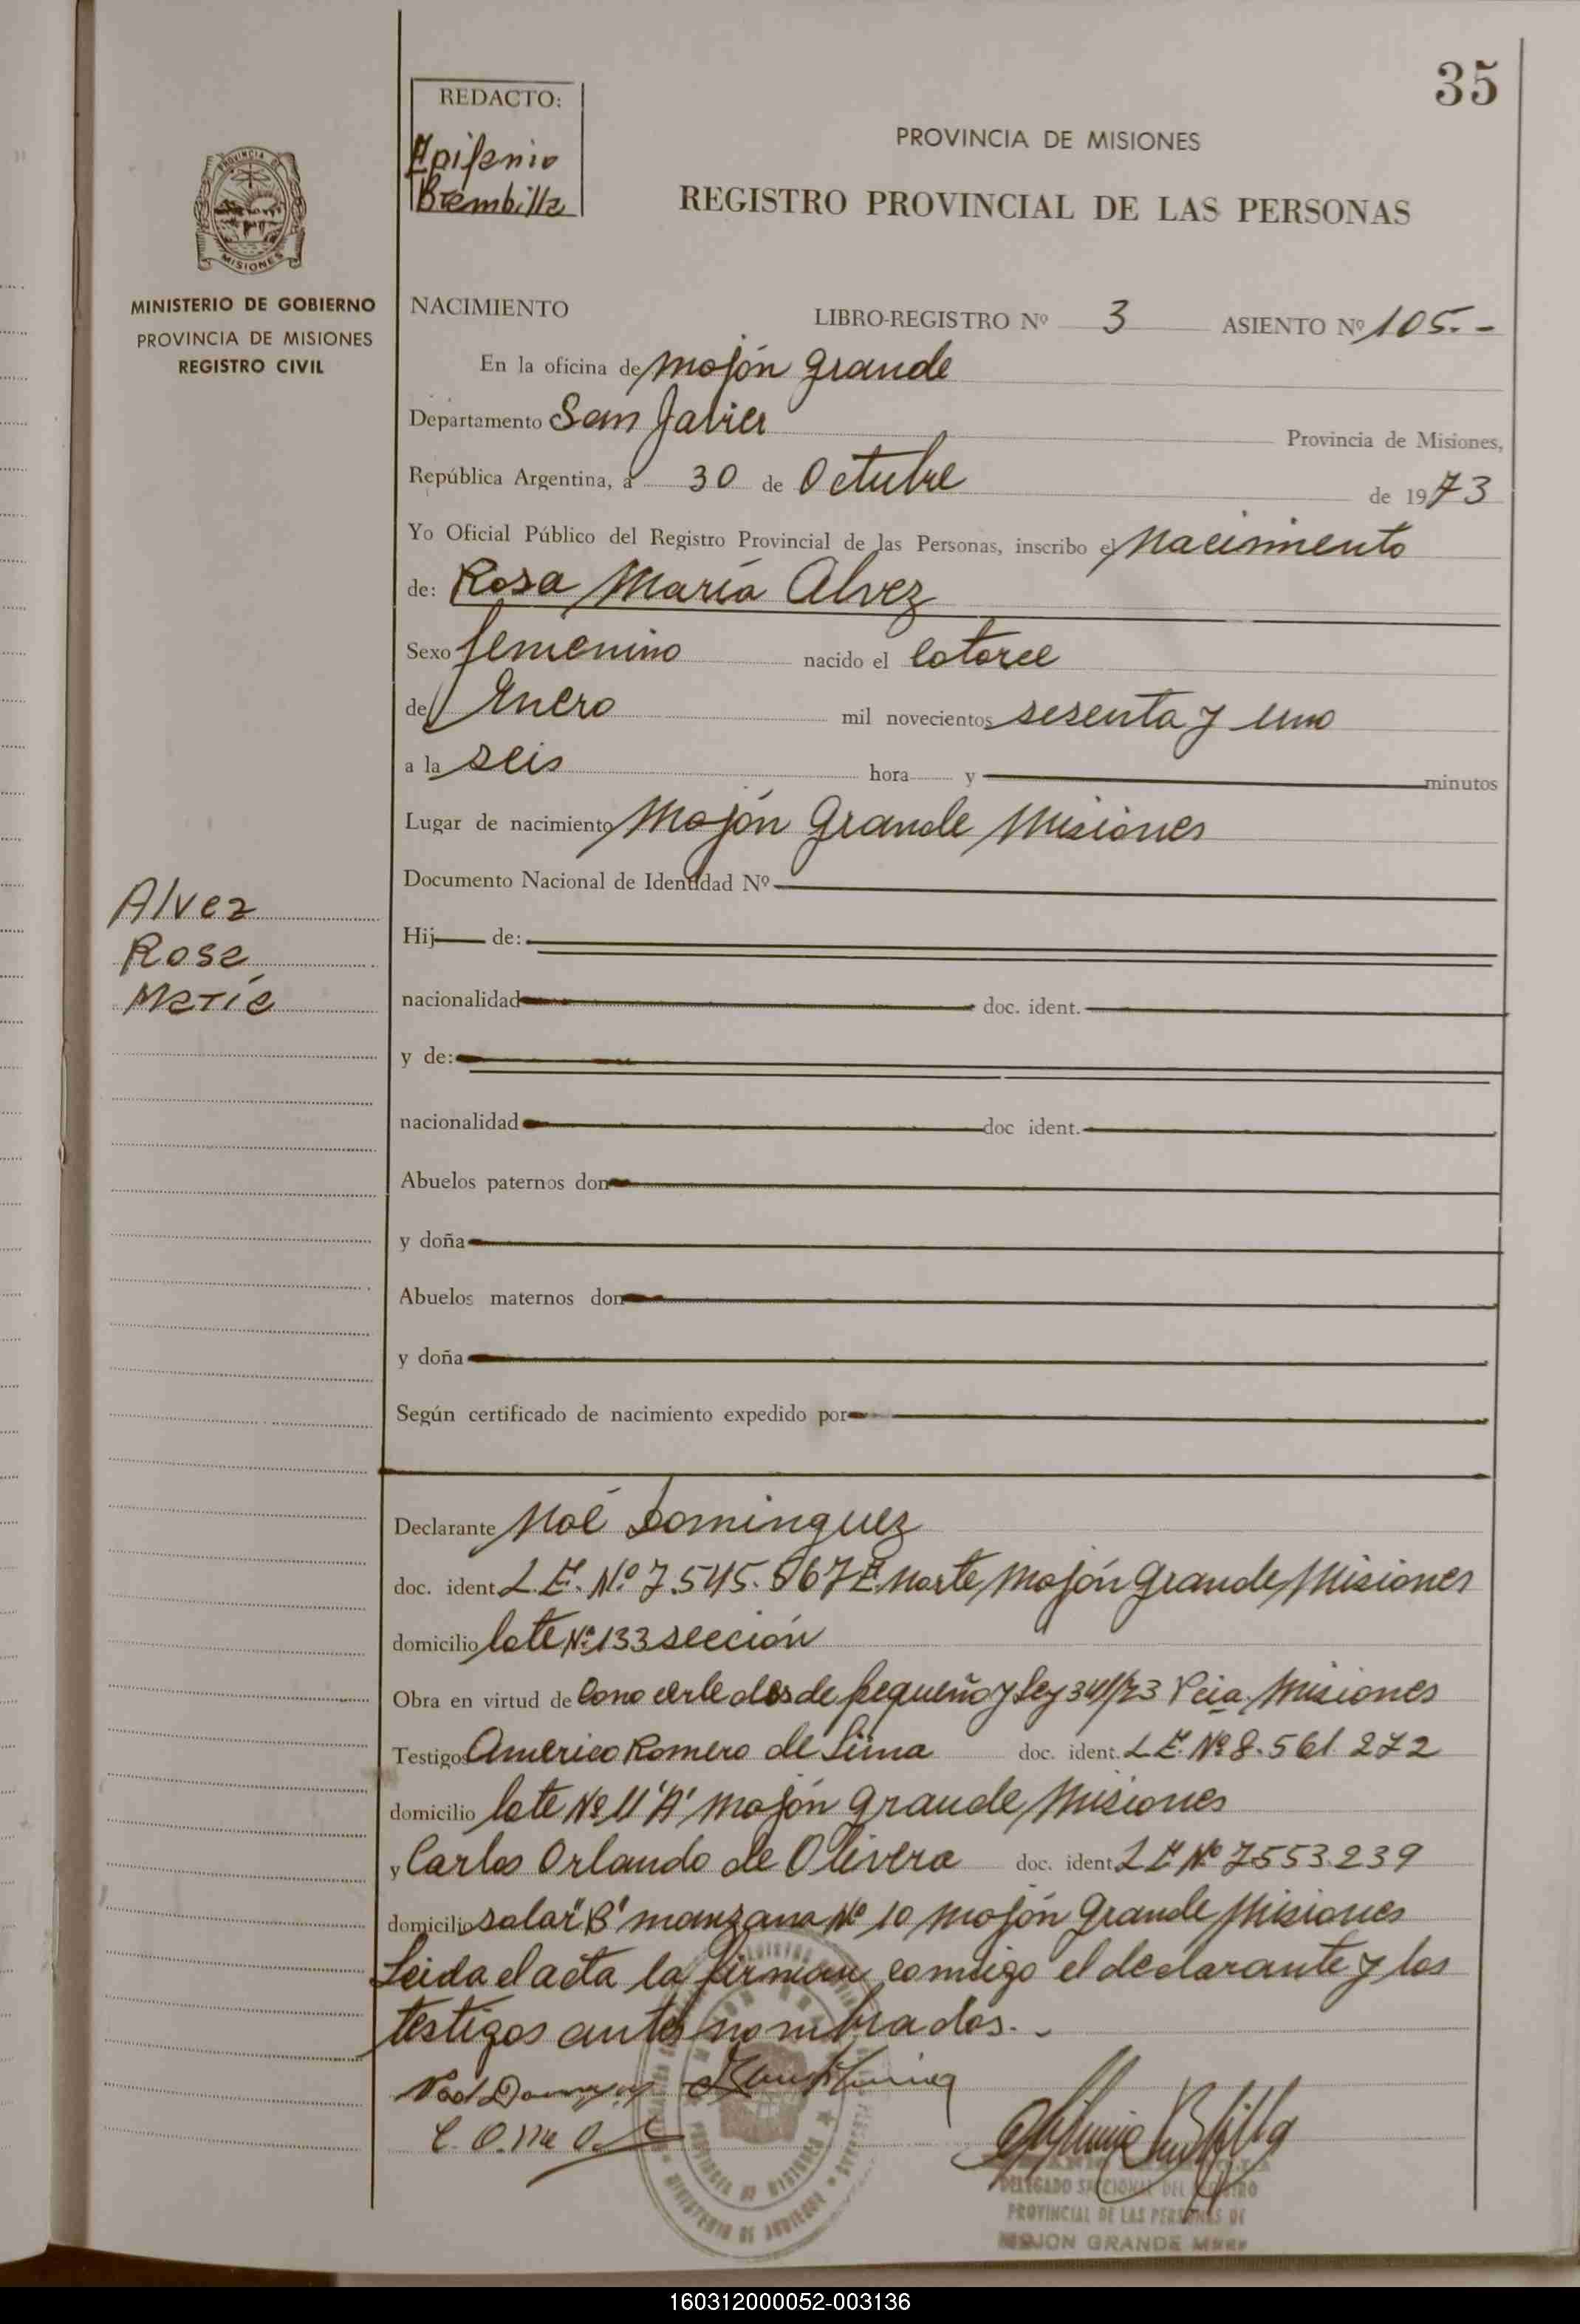 35
REDACTO:
Epifanio
Brembilla
PROVINCIA DE MISIONES
REGISTRO PROVINCIAL DE LAS PERSONAS
MISIONES
MINISTERIO DE GOBIERNO
PROVINCIA DE MISIONES
REGISTRO CIVIL
NACIMIENTO LIBRO-REGISTRO Nº 3 ASIENTO Nº 105.-
En la oficina de Mojón Grande
Departamento San Javier Provincia de Misiones,
República Argentina, a 30 de Octubre de 1973
Yo Oficial Público del Registro Provincial de las Personas, inscribo el Nacimiento
de: Rosa María Alvez
Sexo femenino nacido el catorce
de Enero mil novecientos sesenta y uno
a la seis hora y minutos
Lugar de nacimiento Mojón Grande Misiones
Documento Nacional de Identidad Nº
Alvez
Rosa
María
Hij de:
nacionalidad doc. ident.
y de:
nacionalidad doc ident.
Abuelos paternos don
y doña
Abuelos maternos don
y doña
Según certificado de nacimiento expedido por
Declarante Noé Dominguez
doc. ident L.E. Nº 7.545. norte Mojón Grande Misiones
domicilio lote Nº 133 sección
Obra en virtud de conocerle desde pequeño y Ley 341/73 Pcia. Misiones
Testigos Americo Romero de Lima doc. ident. L.E. Nº 8.561.272
domicilio lote Nº 11 "A" Mojón Grande Misiones
y Carlos Orlando de Olivera doc. ident L E Nº 7553.239
domicilio solar "B" manzana Nº 10 Mojón Grande Misiones
Leida el acta la firman conmigo el declarante y los
testigos antes nombrados.-
DELEGADO SECCIONAL DEL REGISTRO
PROVINCIAL DE LAS PERSONAS DE
MOJON GRANDE
160312000052-003136